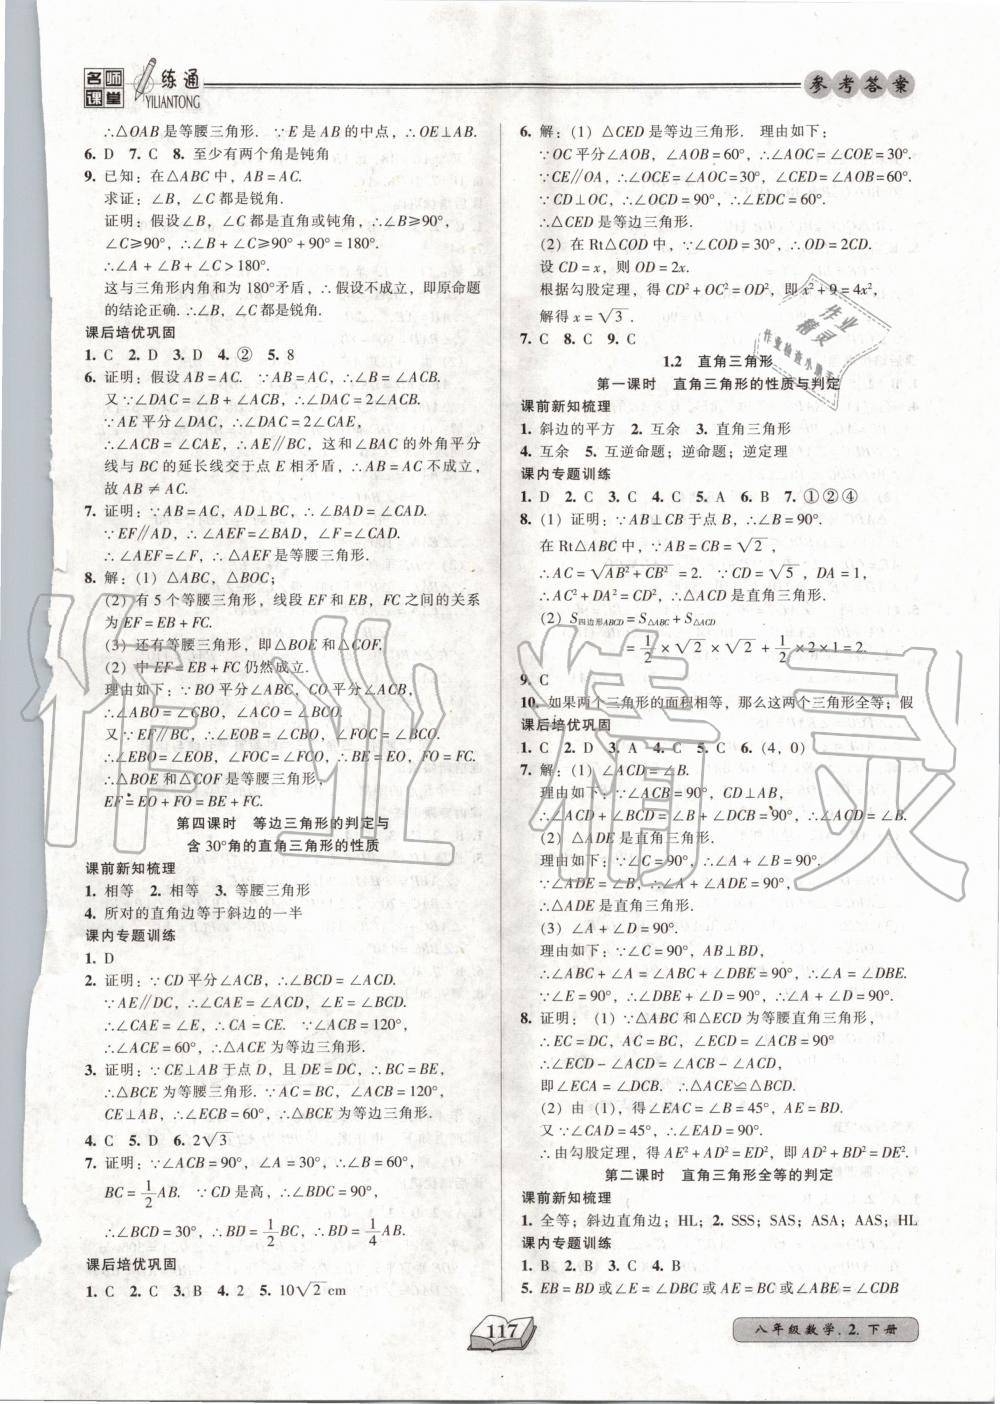 名师课堂 一练通
YILIANTONG
参考答案
∴△OAB是等腰三角形. ∵E是AB的中点,∴OE⊥AB.
6. D 7. C 8. 至少有两个角是钝角
9. 已知:在△ABC中,AB=AC.
求证:∠B,∠C都是锐角.
证明:假设∠B,∠C都是直角或钝角,∴∠B≥90°,
∠C≥90°,∴∠B+∠C≥90°+90°=180°.
∴∠A+∠B+∠C>180°.
这与三角形内角和为180°矛盾,∴假设不成立,即原命题
的结论正确.∴∠B,∠C都是锐角.
课后培优巩固
1. C 2. D 3. D 4. ② 5. 8
6. 证明:假设AB=AC. ∵AB=AC,∴∠B=∠ACB.
又∵∠DAC=∠B+∠ACB,∴∠DAC=2∠ACB.
∵AE平分∠DAC,∴∠DAC=2∠CAE,
∴∠ACB=∠CAE,∴AE∥BC,这和∠BAC的外角平分
线与BC的延长线交于点E相矛盾,∴AB=AC不成立,
故AB≠AC.
7. 证明:∵AB=AC,AD⊥BC,∴∠BAD=∠CAD.
∵EF∥AD,∴∠AEF=∠BAD,∠F=∠CAD.
∴∠AEF=∠F,∴△AEF是等腰三角形.
8. 解:(1)△ABC,△BOC;
(2)有5个等腰三角形,线段EF和EB,FC之间的关系
为EF=EB+FC.
(3)还有等腰三角形,即△BOE和△COF.
(2)中EF=EB+FC仍然成立.
理由如下:∵BO平分∠ABC,CO平分∠ACB,
∴∠ABO=∠CBO,∠ACO=∠BCO.
又∵EF∥BC,∴∠EOB=∠CBO,∠FOC=∠BCO.
∴∠EBO=∠EOB,∠FOC=∠FCO,∴BE=EO,FO=FC.
∴△BOE和△COF是等腰三角形.
EF=EO+FO=BE+FC.
第四课时 等边三角形的判定与
含30°角的直角三角形的性质
课前新知梳理
1. 相等 2. 相等 3. 等腰三角形
4. 所对的直角边等于斜边的一半
课内专题训练
1. D
2. 证明:∵CD平分∠ACB,∴∠BCD=∠ACD.
∵AE∥DC,∴∠CAE=∠ACD,∠E=∠BCD.
∴∠CAE=∠E,∴CA=CE. ∵∠ACB=120°,
∴∠ACE=60°,∴△ACE为等边三角形.
3. 证明:∵CE⊥AB于点D,且DE=DC,∴BC=BE,
∴△BCE为等腰三角形. ∵AC=BC,∠ACB=120°,
CE⊥AB,∴∠ECB=60°,∴△BCE为等边三角形.
4. C 5. D 6. 2√3
7. 证明:∵∠ACB=90°,∠A=30°,∴∠B=60°,
BC=1/2AB. ∵CD是高,∴∠BDC=90°,
∴∠BCD=30°,∴BD=1/2BC,∴BD=1/4AB.
课后培优巩固
1. C 2. C 3. B 4. 2 5. 10√2cm
6. 解:(1)△CED是等边三角形. 理由如下:
∵OC平分∠AOB,∠AOB=60°,∴∠AOC=∠COE=30°.
∵CE∥OA,∴∠OCE=∠AOC=30°,∠CED=∠AOB=60°.
∵CD⊥OC,∴∠OCD=90°,∴∠EDC=60°.
∴△CED是等边三角形.
(2)在Rt△COD中,∵∠COD=30°,∴OD=2CD.
设CD=x,则OD=2x.
根据勾股定理,得CD²+OC²=OD²,即x²+9=4x²,
解得x=√3.
7. C 8. C 9. C
1.2 直角三角形
第一课时 直角三角形的性质与判定
课前新知梳理
1. 斜边的平方 2. 互余 3. 直角三角形
4. 互余 5. 互逆命题;逆命题;逆定理
课内专题训练
1. D 2. C 3. C 4. C 5. A 6. B 7. ①②④
8. (1)证明:∵AB⊥CB于点B,∴∠B=90°.
在Rt△ABC中,∵AB=CB=√2,
∴AC=√(AB²+CB²)=2. ∵CD=√5,DA=1,
∴AC²+DA²=CD²,∴△ACD是直角三角形.
(2)S四边形ABCD=S△ABC+S△ACD
=1/2×√2×√2+1/2×2×1=2.
9. C
10. 如果两个三角形的面积相等,那么这两个三角形全等;假
课后培优巩固
1. C 2. D 3. A 4. C 5. C 6. (4,0)
7. 解:(1)∠ACD=∠B.
理由如下:∵∠ACB=90°,CD⊥AB,
∴∠ACD+∠BCD=∠B+∠DCB=90°,∴∠ACD=∠B.
(2)△ADE是直角三角形.
∵∠ACB=90°,∴∠A+∠B=90°.
∵∠ADE=∠B,∴∠A+∠ADE=90°,
∴△ADE是直角三角形.
(3)∠A+∠D=90°.
理由如下:∵∠C=90°,AB⊥BD,
∴∠ABC+∠A=∠ABC+∠DBE=90°,∴∠A=∠DBE.
∵∠E=90°,∴∠DBE+∠D=90°,∴∠A+∠D=90°.
8. 证明:(1)∵△ABC和△ECD为等腰直角三角形,
∴EC=DC,AC=BC,∠ECD=∠ACB=90°
∴∠ECD-∠ACD=∠ACB-∠ACD,
即∠ECA=∠DCB,∴△ACE≌△BCD.
(2)由(1),得∠EAC=∠B=45°,AE=BD.
又∵∠CAD=45°,∴∠EAD=90°.
∴由勾股定理,得AE²+AD²=ED²,即AD²+BD²=DE².
第二课时 直角三角形全等的判定
课前新知梳理
1. 全等;斜边直角边;HL;2. SSS;SAS;ASA;AAS;HL
课内专题训练
1. B 2. B 3. C 4. B
5. EB=BD或∠E=∠DBC或AE=BC或∠ABE=∠CDB
117
八年级数学.2.下册
作业精灵
作业精灵